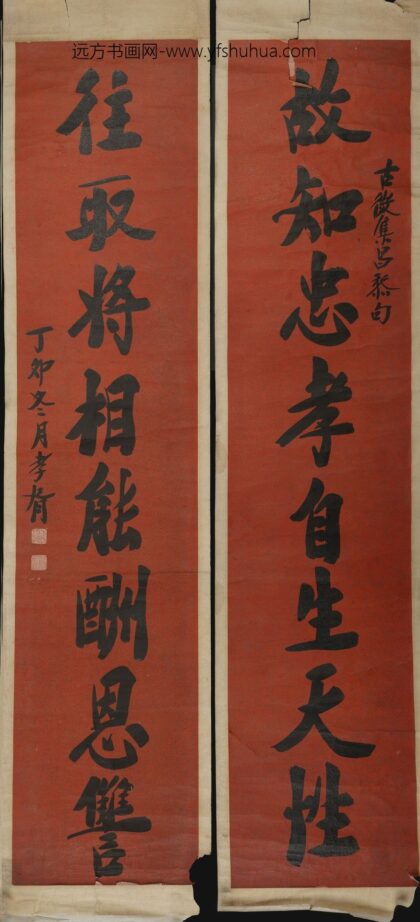 远方书画网-www.yfshuhua.com
故知忠孝自生天性
古微集昌黎句
往取将相能酬恩讐
丁卯冬月孝胥